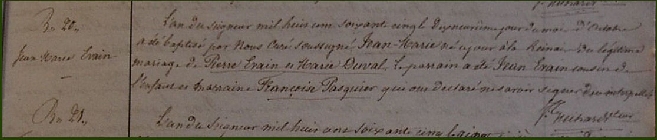 B. 20.
Jean Marie Erain
L'an du Seigneur mil huit cent soixante cinq le jour du mois d'Octobre
a été baptisé par Nous Curé soussigné Jean-Marie né ce jour à la du légitime
mariage de Pierre Erain et Marie Duval, le parrain a été Jean Erain cousin de
l'enfant et marraine Françoise Pasquier qui ont déclaré ne savoir signer
B. 21.
L'an du Seigneur mil huit cent soixante cinq le